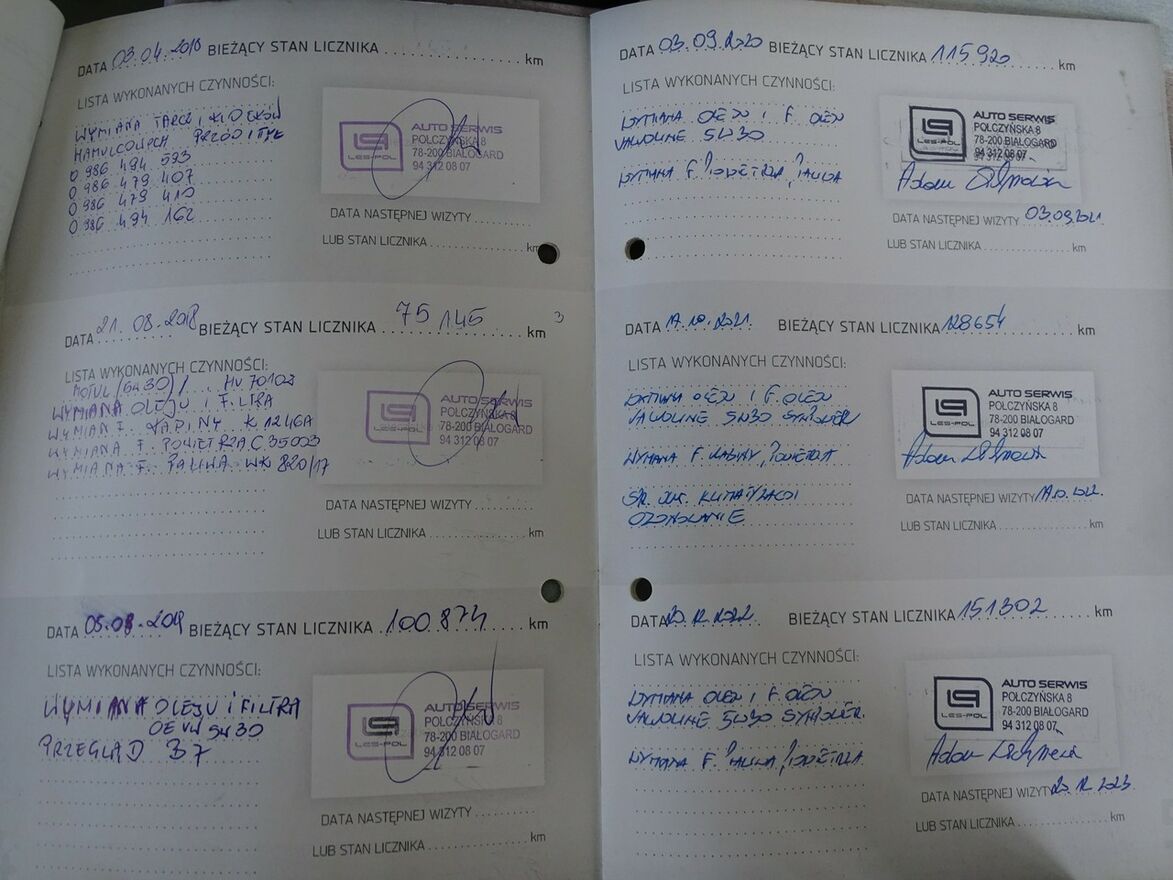 DATA 03.04.2018 BIEŻĄCY STAN LICZNIKA km
LISTA WYKONANYCH CZYNNOŚCI:
WYMIANA TARCZ I KLOCKÓW
HAMULCOWYCH PRZÓD I TYŁ
0 986 494 593
0 986 479 407
0 986 479 410
0 986 494 162
LG
LES-POL
AUTO SERWIS
POŁCZYŃSKA 8
78-200 BIAŁOGARD
94 312 08 07
DATA NASTĘPNEJ WIZYTY
LUB STAN LICZNIKA km
DATA 21.08.2018 BIEŻĄCY STAN LICZNIKA 75 145 km
LISTA WYKONANYCH CZYNNOŚCI:
MOTUL (5W30) HU 7010z
WYMIANA OLEJU I FILTRA
WYMIANA F. KABINY K 1246A
WYMIANA F. POWIETRZA C 35003
WYMIANA F. PALIWA WK 820/17
LG
LES-POL
AUTO SERWIS
POŁCZYŃSKA 8
78-200 BIAŁOGARD
94 312 08 07
DATA NASTĘPNEJ WIZYTY
LUB STAN LICZNIKA km
DATA 05.08.2019 BIEŻĄCY STAN LICZNIKA 100 874 km
LISTA WYKONANYCH CZYNNOŚCI:
WYMIANA OLEJU I FILTRA
OE VW 5W30
PRZEGLĄD B7
LG
LES-POL
AUTO SERWIS
POŁCZYŃSKA 8
78-200 BIAŁOGARD
94 312 08 07
DATA NASTĘPNEJ WIZYTY
LUB STAN LICZNIKA km
DATA 03.09.2020 BIEŻĄCY STAN LICZNIKA 115920 km
LISTA WYKONANYCH CZYNNOŚCI:
WYMIANA OLEJU I F. OLEJU
VALVOLINE 5W30
WYMIANA F. POWIETRZA, PALIWA
LG
LES-POL
AUTO SERWIS
POŁCZYŃSKA 8
78-200 BIAŁOGARD
94 312 08 07
Adam
DATA NASTĘPNEJ WIZYTY 03.09.2021
LUB STAN LICZNIKA km
DATA 19.10.2021. BIEŻĄCY STAN LICZNIKA 128654 km
LISTA WYKONANYCH CZYNNOŚCI:
WYMIANA OLEJU I F. OLEJU
VALVOLINE 5W30 SYNPOWER
WYMIANA F. KABINY, POWIETRZA
KLIMATYZACJI
OZONOWANIE
LG
LES-POL
AUTO SERWIS
POŁCZYŃSKA 8
78-200 BIAŁOGARD
94 312 08 07
Adam
DATA NASTĘPNEJ WIZYTY 19.10.2022.
LUB STAN LICZNIKA km
DATA 20.12.2022. BIEŻĄCY STAN LICZNIKA 151302 km
LISTA WYKONANYCH CZYNNOŚCI:
WYMIANA OLEJU I F. OLEJU
VALVOLINE 5W30 SYNPOWER.
WYMIANA F. PALIWA, POWIETRZA
LG
LES-POL
AUTO SERWIS
POŁCZYŃSKA 8
78-200 BIAŁOGARD
94 312 08 07
Adam
DATA NASTĘPNEJ WIZYTY 20.12.2023.
LUB STAN LICZNIKA km